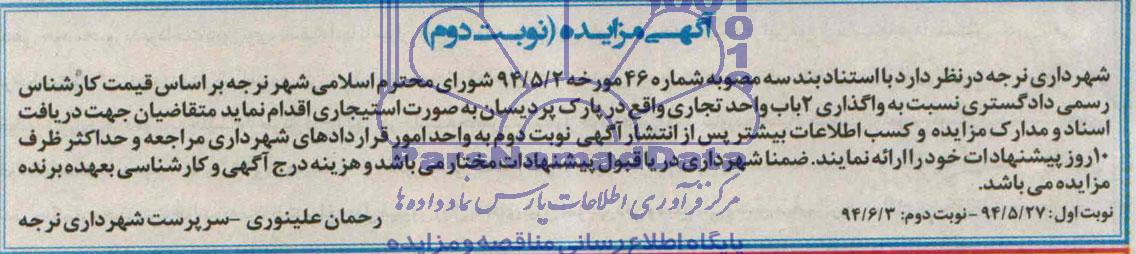 آگهی مزایده (نوبت دوم)
شهرداری نرجه در نظر دارد با استناد بند سه مصوبه شماره ۴۶ مورخه ۹۴/۵/۲ شورای محترم اسلامی شهر نرجه بر اساس قیمت کارشناس
رسمی دادگستری نسبت به واگذاری ۲ باب واحد تجاری واقع در پارک پردیسان به صورت استیجاری اقدام نماید متقاضیان جهت دریافت
اسناد و مدارک مزایده و کسب اطلاعات بیشتر پس از انتشار آگهی نوبت دوم به واحد امور قراردادهای شهرداری مراجعه و حداکثر ظرف
۱۰ روز پیشنهادات خود را ارائه نمایند. ضمنا شهرداری در یا قبول پیشنهادات مختار می باشد و هزینه درج آگهی و کارشناسی بعهده برنده
مزایده می باشد.
مرکز فرآوری اطلاعات پارس نماد داده ها
نوبت اول: ۹۴/۵/۲۷ - نوبت دوم: ۹۴/۶/۳
رحمان علینوری - سرپرست شهرداری نرجه
پایگاه اطلاع رسانی مناقصه و مزایده